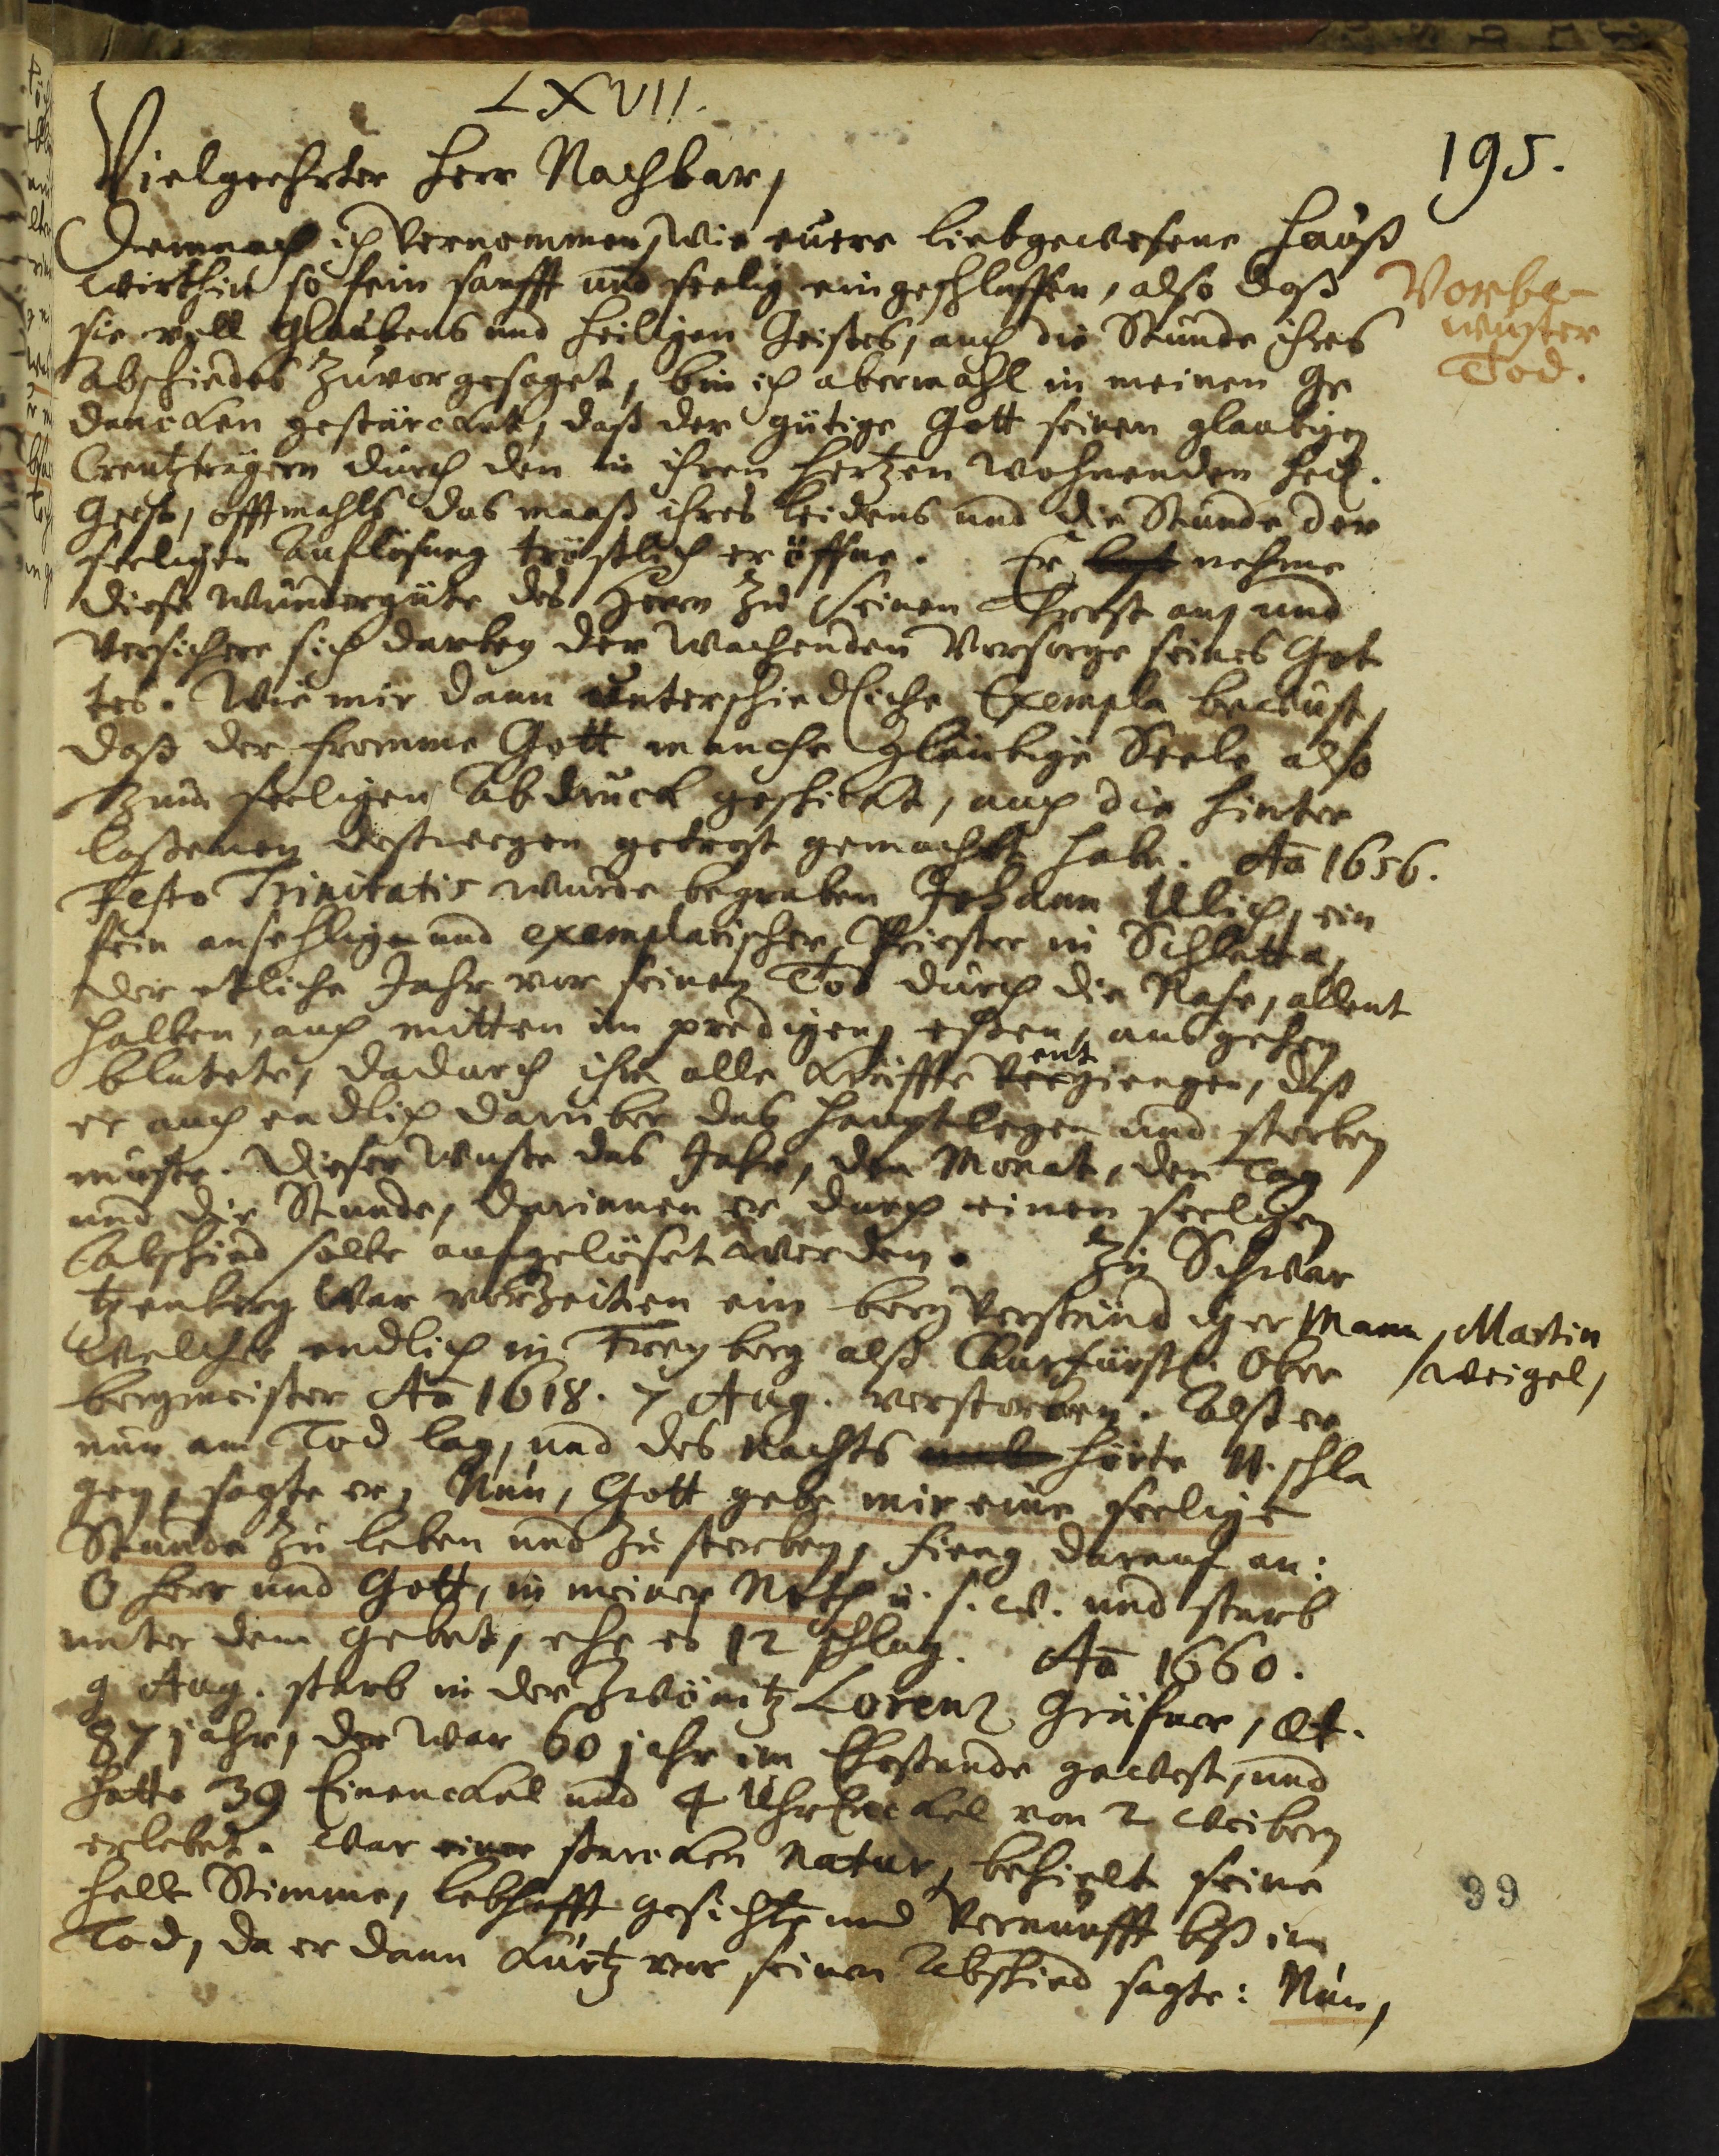 LXVII.
195.
Vielgeehrter Herr Nachbar,
Demnach ich vernommen, wie euere liebgewesene Hauß
wirthin so fein sanfft und seelig eingeschlaffen, also daß
Vorbe-
wuster
Tod.
sie voll Glaubens und Heiligen Geistes, auch die Stunde ihres
Abschiedes zuvorgesaget, bin ich abermahl in meinen Ge
dancken gestärcket, daß der gütige Gott seinen glaubigen
Creutzträgern durch den in ihren Hertzen wohnenden Heil.
Geist, offtmahls das maaß ihres Leidens und die Stunde der
seeligen Aufflösung tröstlich eröffne. Er nehme
diese Wundergüte des Herrn zu seinen Troste an, und
versichere sich darbey der wachenden Vorsorge seines Got
tes. Wie mir dann unterschiedliche Exempla bewust,
daß der fromme Gott manche gläubige Seele also
zum seeligen Abdruck geschickt, auch die hinter
laßenen destwegen getrost gemacht habe. Ao 1656.
Festo Trinitatis wurde begraben Johann Ulich, ein
fein ansehlige und exemplarischer Priester in Schletta,
der etliche Jahr vor seinen Tod durch die Nase, allent
halben, auch mitten im predigen, essen, ausgehen
blutete, dadurch ihm alle Kräffte entgiengen, daß
er auch endlich darüber das Haupt legen und sterben
muste. Dieser wuste das Jahr, den Monat, den Tag
und die Stunde, darinnen er durch einen seeligen
Abschied solte aufgelöset werden. Zu Schwar
tzenberg war vorzeiten ein bergverständiger Mann, Martin
Weigel,
welcher endlich in Freyberg alß Churfürstl. Ober
bergmeister Ao 1618. 7 Aug. verstorben. Alß er
nun am Tod lag, und des Nachts hörte 11. schla
gen, sagte er, Nun, Gott gebe mir eine seelige
Stunde zu leben und zu sterben, fieng darauf an:
O Herr und Gott, in meiner Noth u. s. w. und starb
unter dem Gebet, ehe es 12 schlug. Ao 1660.
9 Aug. starb in der Zwönitz Lorenz Gräfner, æt.
87 jahr, der war 60 jahr im Ehestande gewest, und
hatte 39 Einenckel und 4 UhrEnckel von 2 Weibern
erlebet. War einer starcken Natur, behielt seine
helle Stimme, lebhafft gesichte und Vernunfft biß im
Tod, da er dann kurtz vor seinen Abschied sagte: Nun,
99